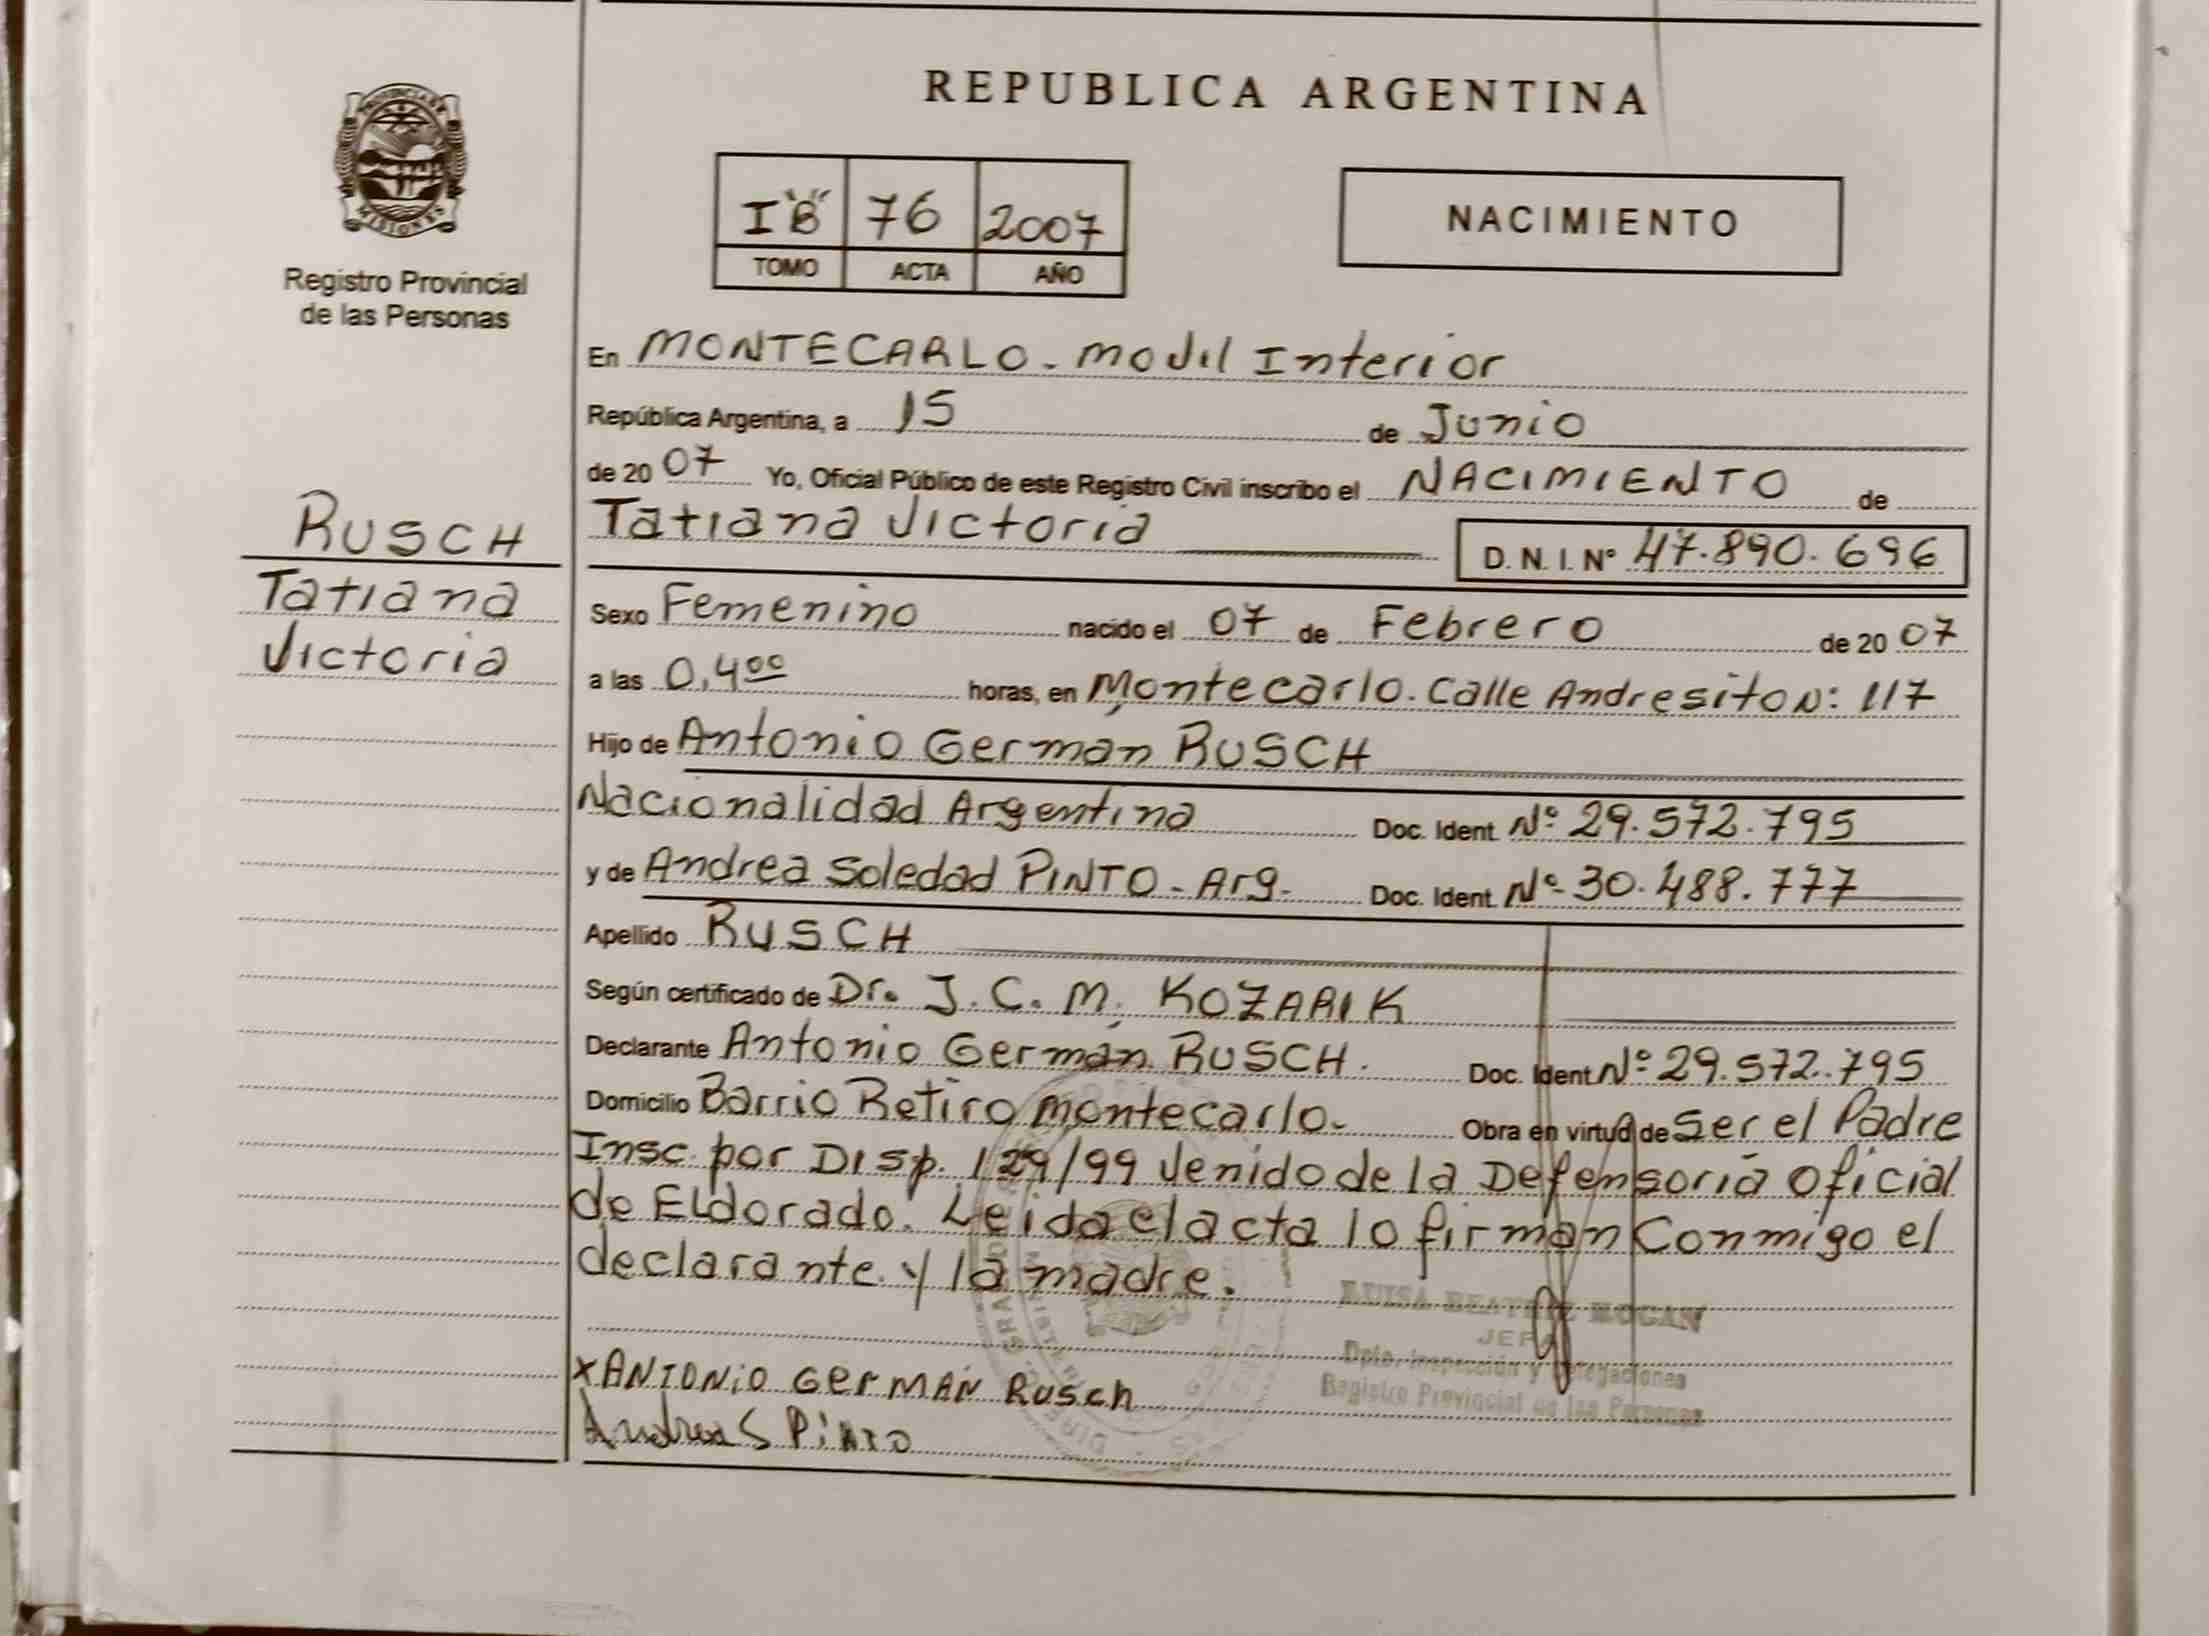 REPUBLICA ARGENTINA
PROVINCIA DE
MISIONES
Registro Provincial
de las Personas
I "B" 76 2007
TOMO ACTA AÑO
NACIMIENTO
En MONTECARLO - Movil Interior
República Argentina, a 15 de Junio
de 20 07 Yo, Oficial Público de este Registro Civil inscribo el NACIMIENTO de
Tatiana Victoria D. N. I. Nº 47.890.696
RUSCH
Tatiana
Victoria
Sexo Femenino nacido el 07 de Febrero de 20 07
a las 0,4 00 horas, en Montecarlo. Calle Andresito N: 117
Hijo de Antonio Germán RUSCH
Nacionalidad Argentina Doc. Ident. Nº 29.572.795
y de Andrea Soledad PINTO - Arg. Doc. Ident. Nº 30.488.777
Apellido RUSCH
Según certificado de Dr. J. C. M. KOZARIK
Declarante Antonio Germán RUSCH. Doc. Ident Nº 29.572.795
Domicilio Barrio Retiro Montecarlo. Obra en virtud de Ser el Padre
Insc. por Disp. 129/99 Venido de la Defensoría Oficial
de Eldorado. Leida el acta lo firman Conmigo el
declarante y la madre.
LUISA BEATRIZ MOCAN
JEFA
Dpto. Inspección y Delegaciones
Registro Provincial de las Personas
X ANTONIO GERMAN Rusch
Andrea S Pinto